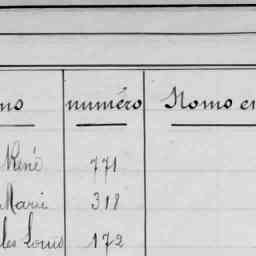 no numéro Nomo en
René 771
Marie 318
les Louis 172